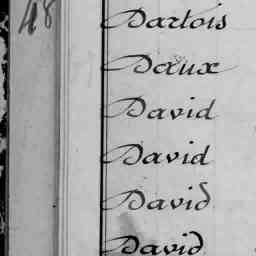 48
Dartois
Daux
David
David
David
David